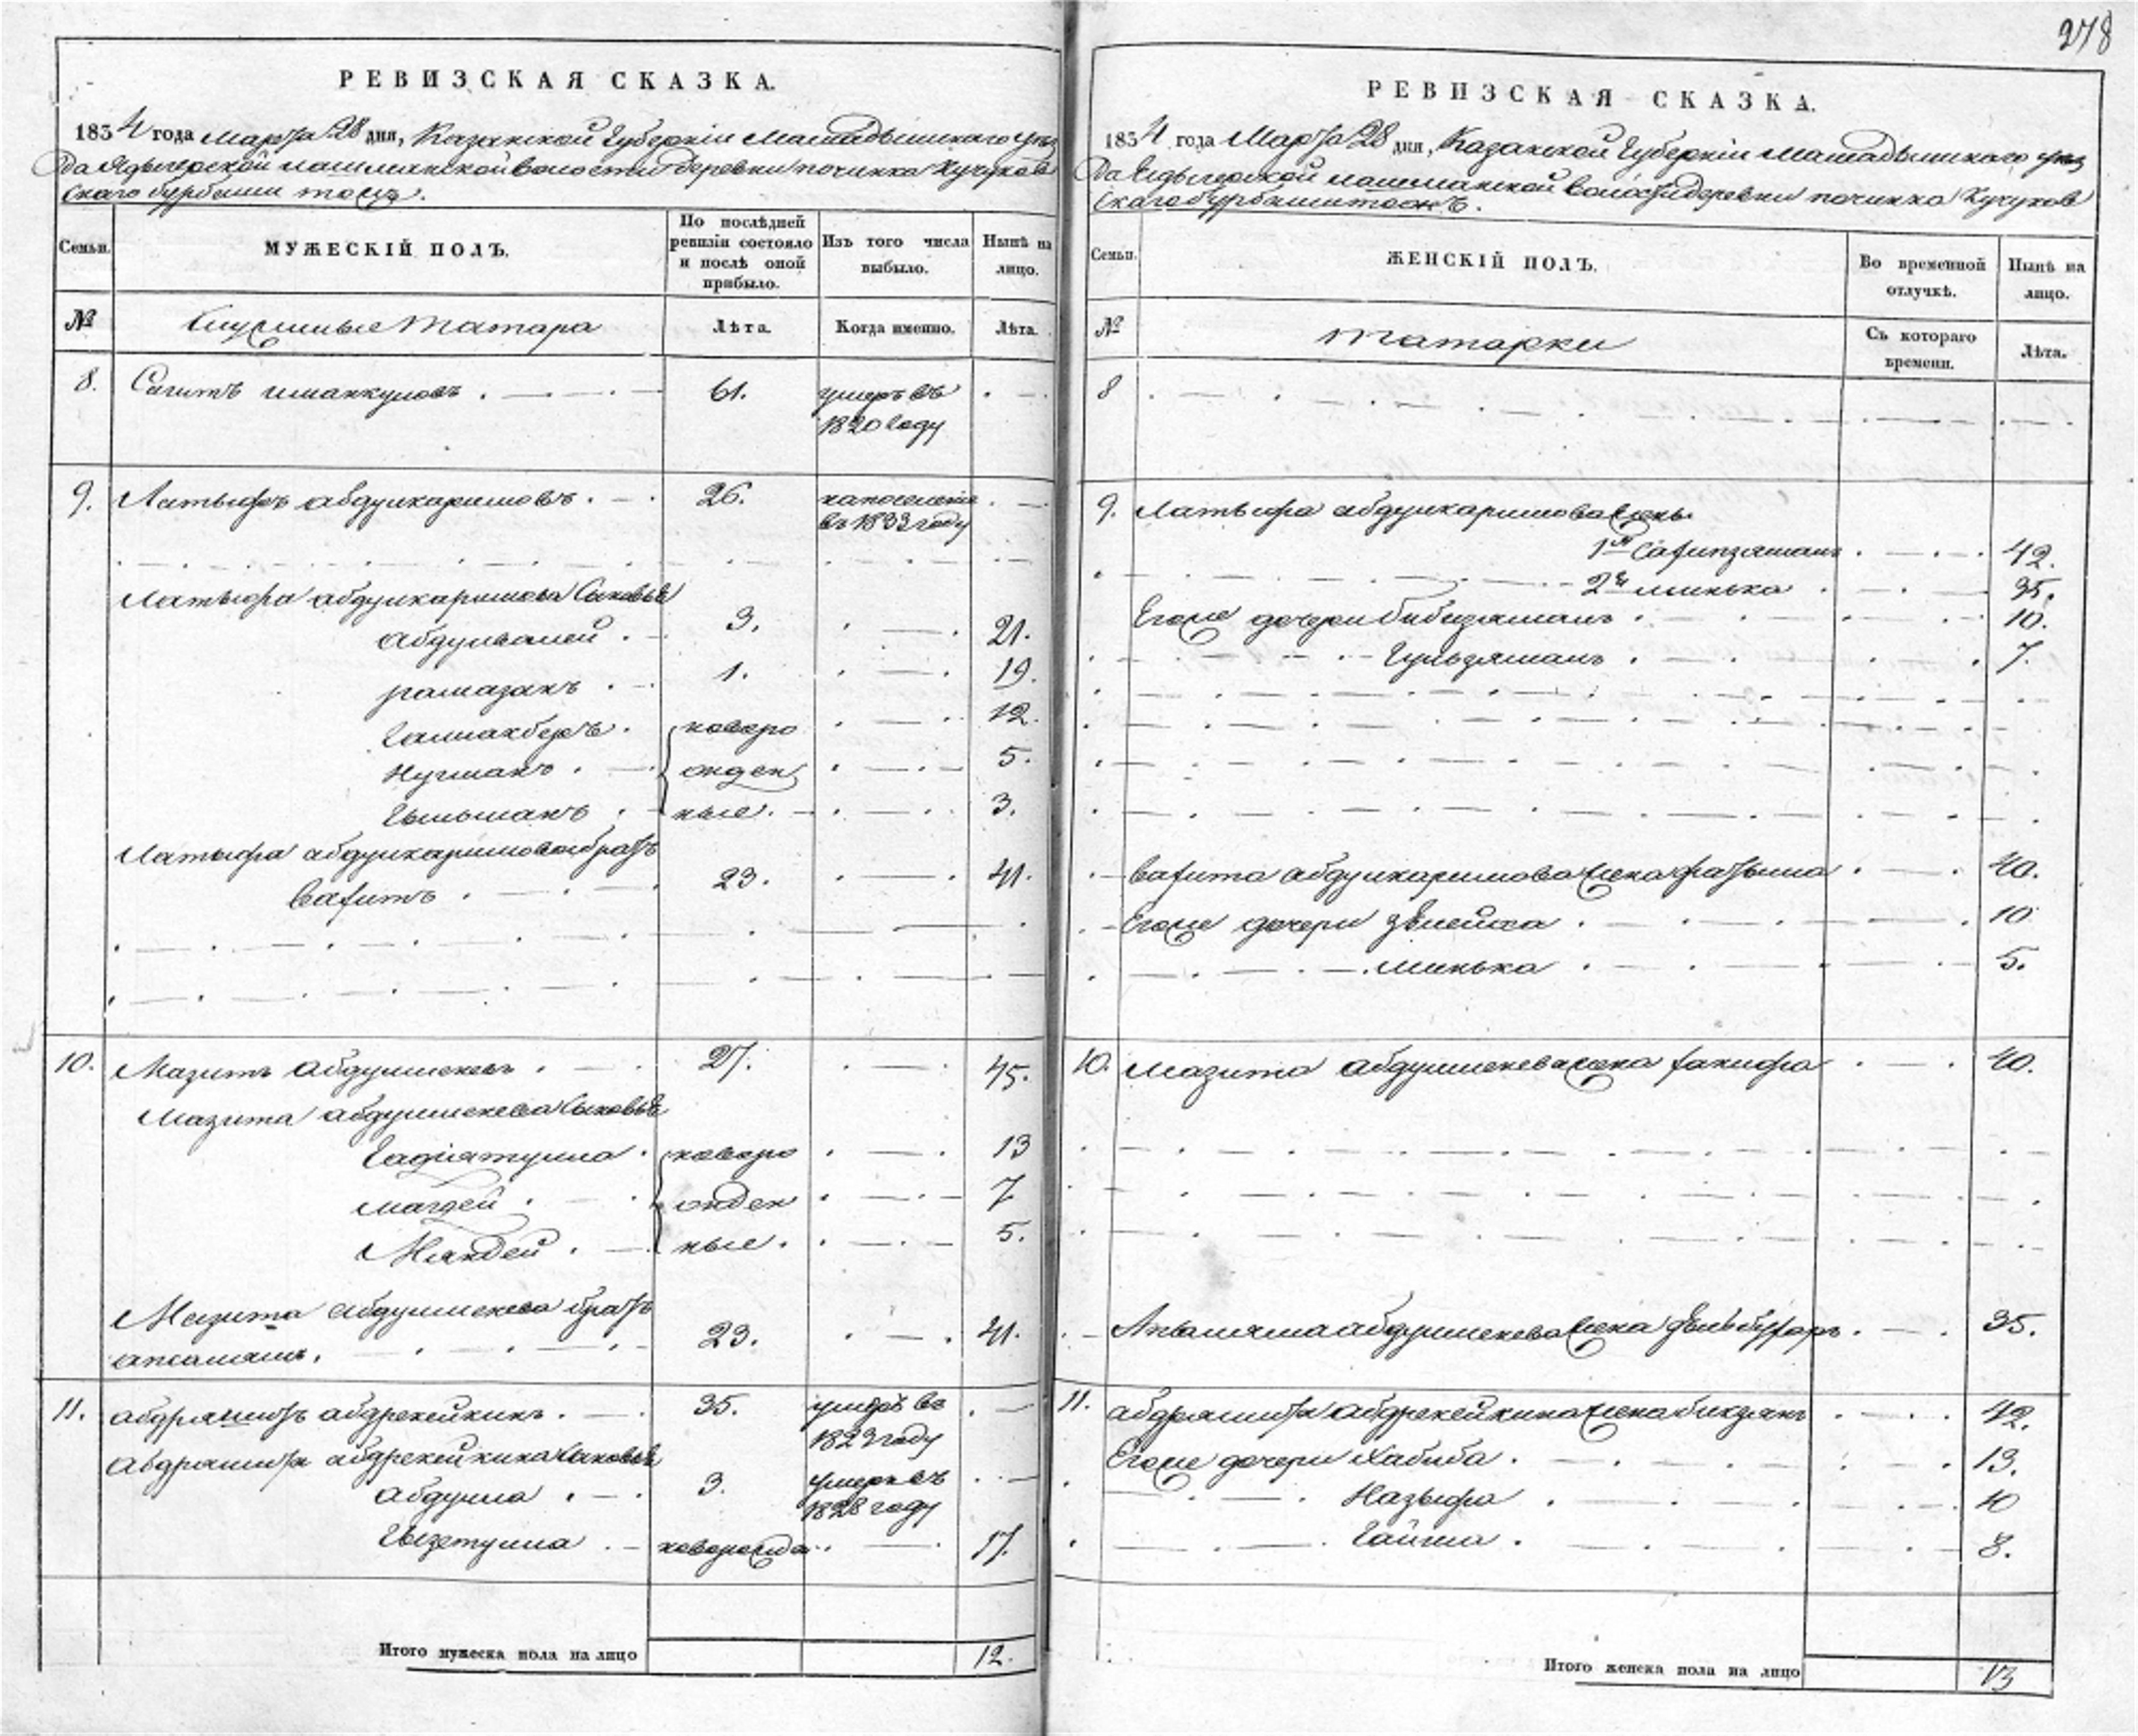 278
РЕВИЗСКАЯ СКАЗКА.
1834 года Марта 28 дня, Казанской Губернiи Мамадышскаго уѣз
да Ядыгерской лашманской волости деревни починка Кучуков
скаго бурбаши тожъ.
Семьи.
МУЖЕСКIЙ ПОЛЪ.
По послѣдней ревизiи состояло и послѣ оной прибыло.
Изъ того числа выбыло.
Нынѣ на лицо.
№
Служилые Татара
Лѣта.
Когда именно.
Лѣта.
8. Сагитъ иманкуловъ . 61. умеръ въ
1820 году
9. Латыфъ абдулкаримовъ . 26. на поселенiе
въ 1833 году
Латыфа абдулкаримова Сыновья
абдулвалей . 3. 21.
рамазанъ . 1. 19.
Галиакберъ . новоро 12.
Нугманъ . жден 5.
Гыльманъ . ные . 3.
Латыфа абдулкаримова братъ
Вагитъ . 23. 41.
10. Мазитъ абдулменевъ . 27. 45.
Мазита абдулменева Сыновья
Гадiятулла . новоро 13
магдей . жден 7
Мяндей . ные . 5.
Мазита абдулменева братъ
апсалямъ . 23. 41.
11. абдряшитъ абдрекейкинъ . 35. умеръ въ
1823 году
Абдрашита абдрекейкина Сыновья
абдулла . 3. умеръ въ
1828 году
Гызетулла . новорожда 17.
Итого мужеска пола на лицо 12.
РЕВИЗСКАЯ СКАЗКА.
1834 года Марта 28 дня, Казанской Губернiи мамадышскаго уѣз
да Ядыгерской лашманской волости деревни починка Кучуков
скаго бурбаши тожъ.
Семьи.
ЖЕНСКIЙ ПОЛЪ.
Во временной отлучкѣ.
Нынѣ на лицо.
№
татарки
Съ котораго времени.
Лѣта.
8
9. Латыфа абдулкаримова жены
1я Сафилзямалъ . 42.
2я минька . 35.
Егоже дочери бибизямалъ . 10.
Гульзямалъ . 7.
Вагита абдулкаримова жена фатыма . 40.
Егоже дочери зѣлейха . 10
минька . 5.
10. Мазита абдулменева жена 40.
Апсаляма абдулменева жена 35.
11. абдряшита абдрекейкина жена бикзянъ 42.
Егоже дочери Хабиба . 13.
Назыфа . 10
Гайша . 8.
Итого женска пола на лицо 13